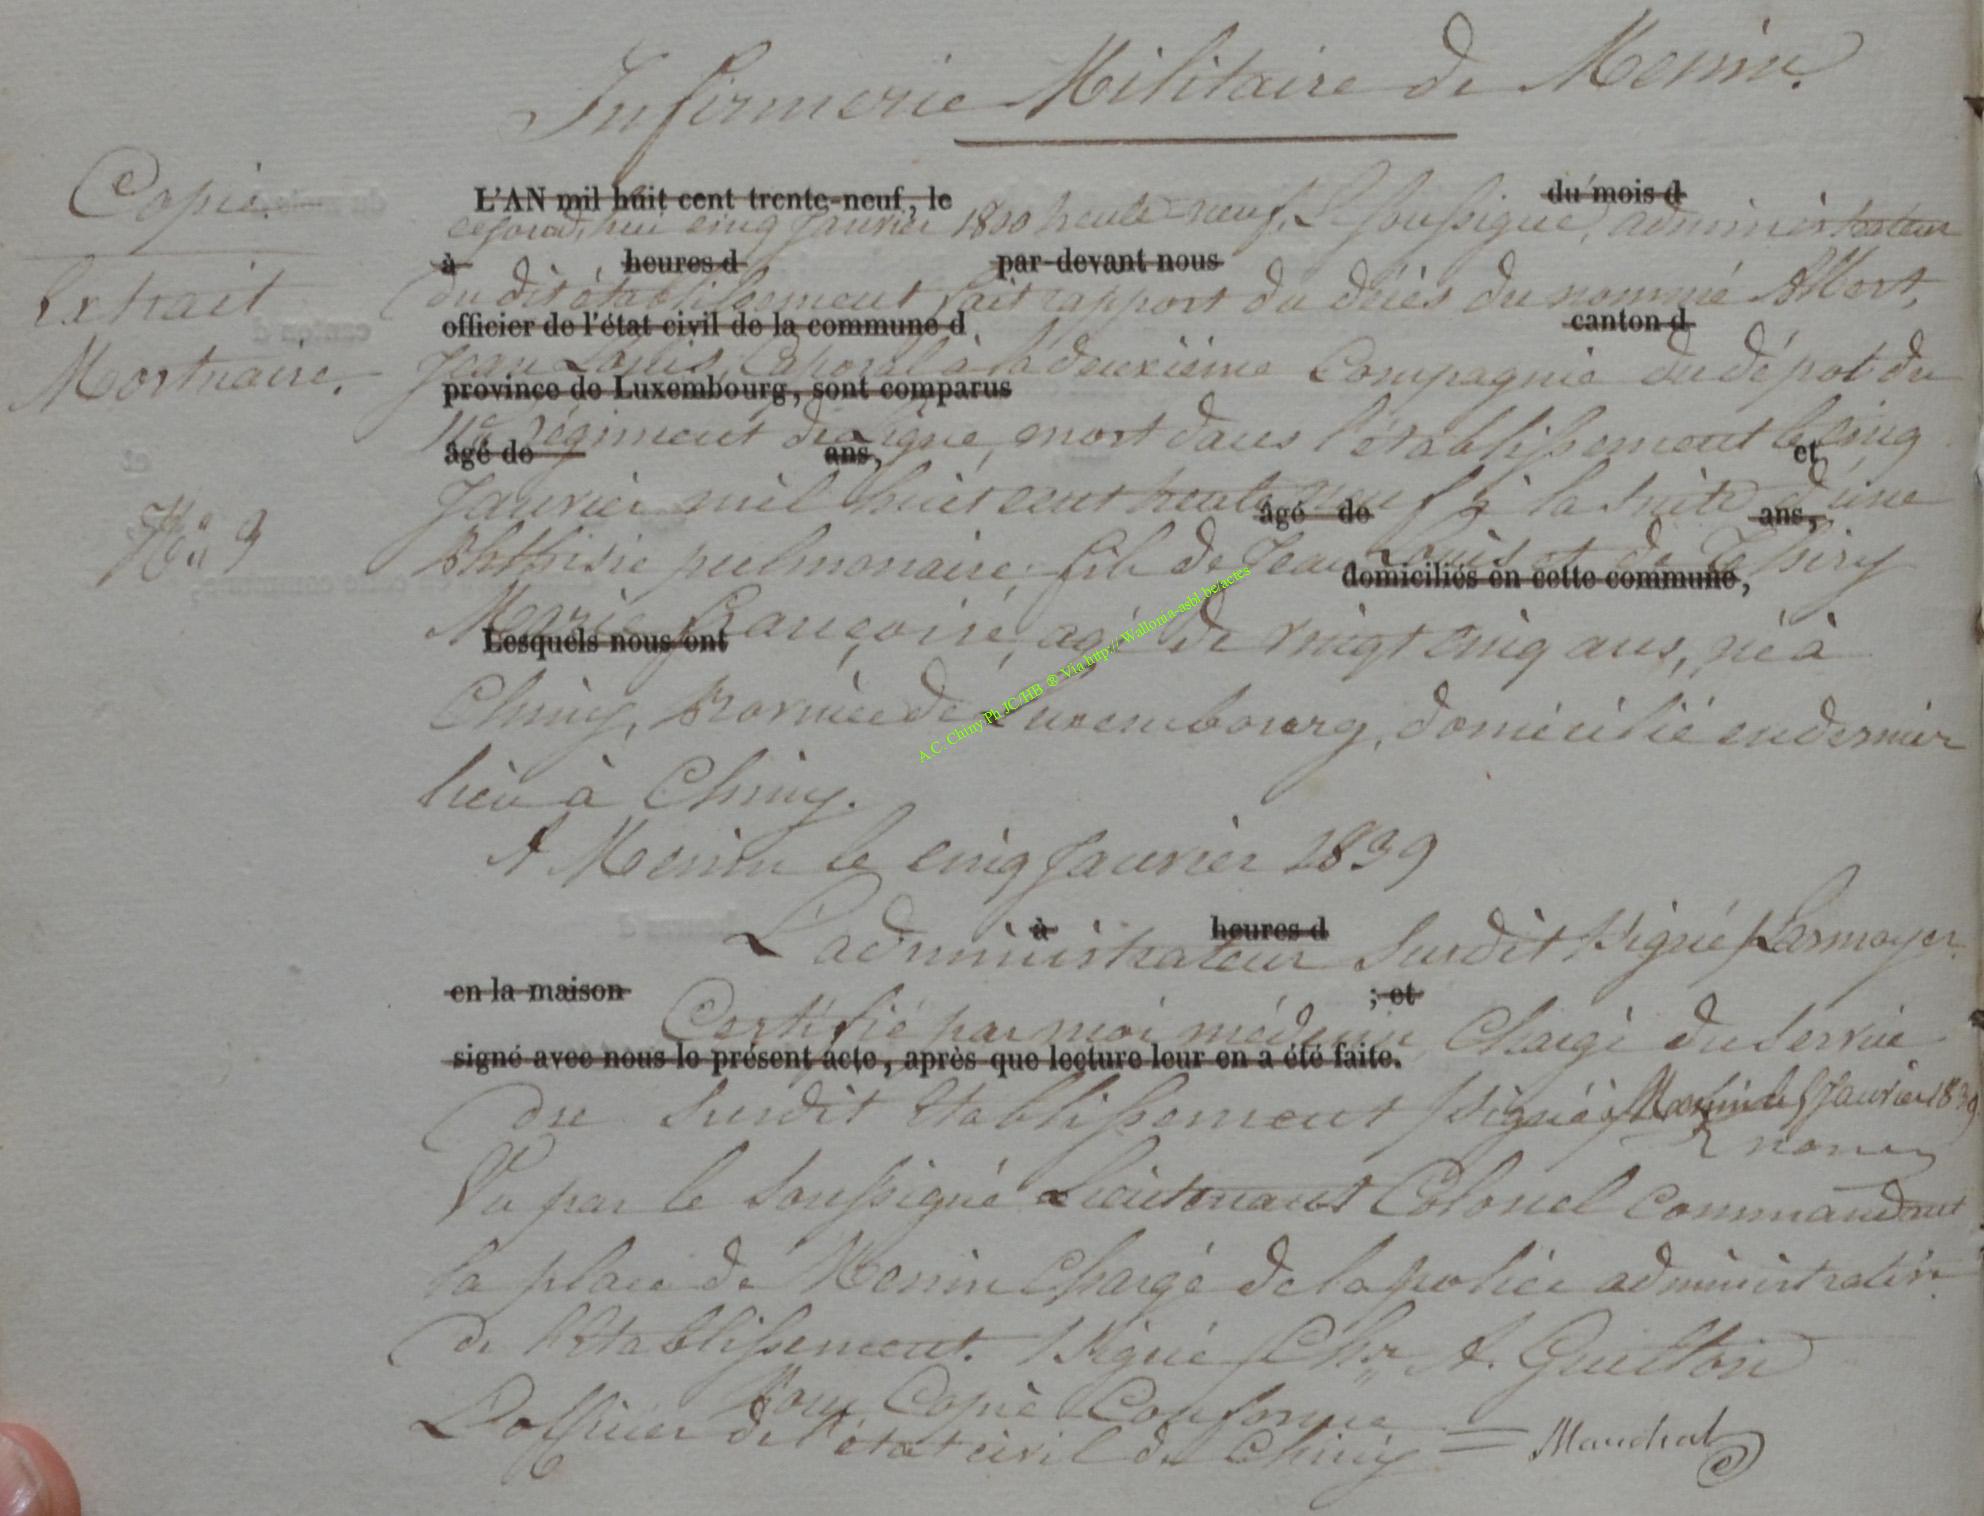 Infirmerie Militaire de Menin.
Copie.
Extrait
Mortuaire.
No. 9
L'AN mil huit cent trente-neuf, le du mois d
cejourd'hui cinq Janvier 1800 trente-neuf, Le soussigné, administrateur
à heures d par-devant nous
du dit établissement fait rapport du décès du nommé Allert,
officier de l'état civil de la commune d canton d
Jean Louis, Caporal à la deuxième Compagnie du dépot du
province de Luxembourg, sont comparus
11e régiment de ligne, mort dans l'établissement le cinq
âgé de ans, et
Janvier mil huit cent trente neuf à la suite d'une
âgé de ans,
Phthisie pulmonaire, fils de Jean Louis et de Thiry
domiciliés en cette commune,
Marie françoise, agé de vingt cinq ans, né à
Lesquels nous ont
Chiny, Province de Luxembourg, domicilié en dernier
lieu à Chiny.
A Menin le cinq Janvier 1839
L'administrateur Susdit signé Larmoyer
à heures d
en la maison ; et
Certifié par moi médecin, Chargé du Service
signé avec nous le présent acte, après que lecture leur en a été faite.
du Susdit établissement signé Menin le 5 Janvier 1839
Vu par le Soussigné Lieutenant Colonel Commandant
la place de Menin Chargé de la police administrative
de l'établissement. signé Chr. A. Guilton
Pour Copie Conforme
L'officier de l'état civil de Chiny = Mauchal
A.C. Chiny Ph JC/HB ® Via http:// Wallonia-asbl.be/actes